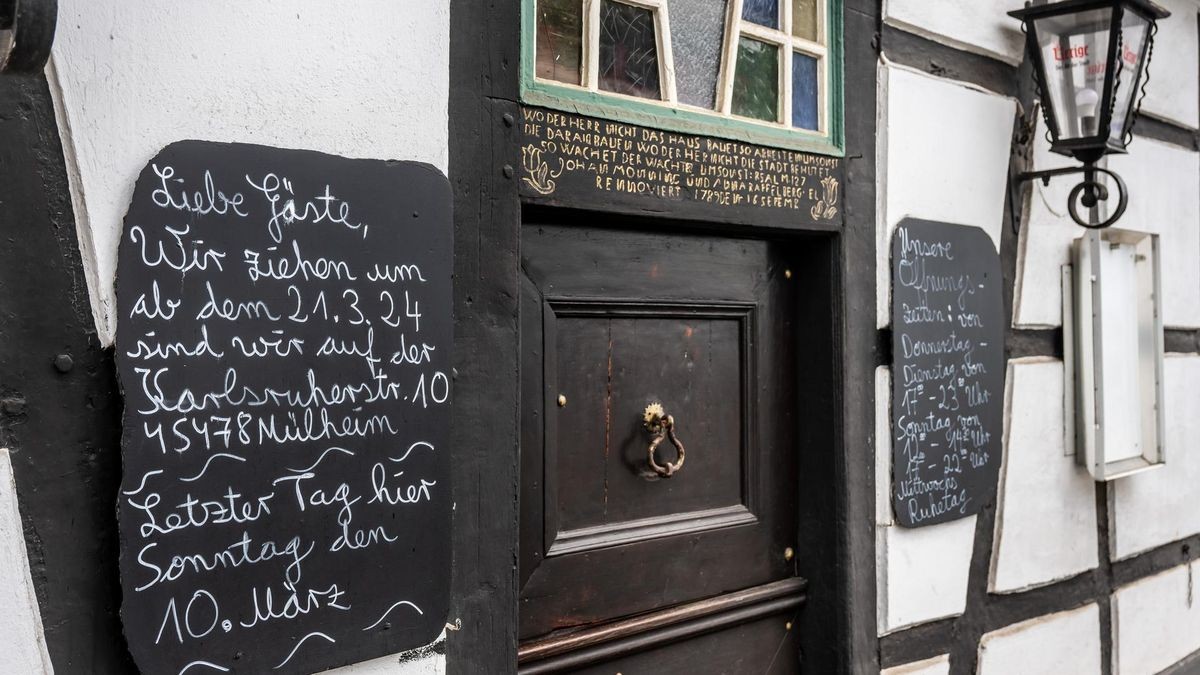 Liebe Gäste,
Wir ziehen um
ab dem 21.3.24
sind wir auf der
Karlsruherstr. 10
45478 Mülheim
Letzter Tag hier
Sonntag den
10. März
WO DER HERR NICHT DAS HAUS BAUET SO ARBEITEN UMSONST
DIE DARAN BAUEN WO DER HERR NICHT DIE STADT BEHUTET
SO WACHET DER WACHTER UMSONST: PSALM 127
JOHAN MONNING UND ANNA RAFFELBERG
RENNOVIERT 1789 DEN 16 SEPEMR
Unsere
Öffnungs-
zeiten: von
Donnerstag -
Dienstag von
17°° - 23 Uhr
Sonntag von
12°° - 14°° Uhr
17 - 22 Uhr
Mittwochs
Ruhetag